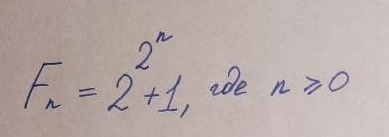 Fₙ = 2^{2ⁿ} + 1, где n ⩾ 0